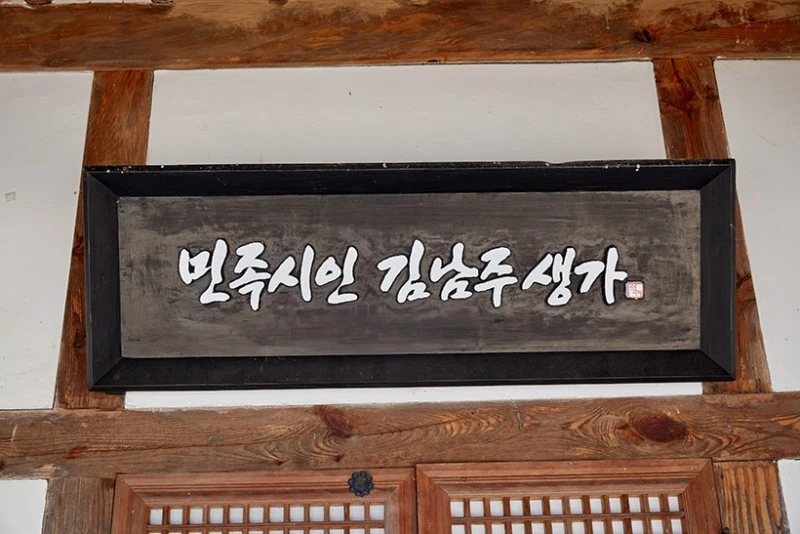 민족시인 김남주 생가